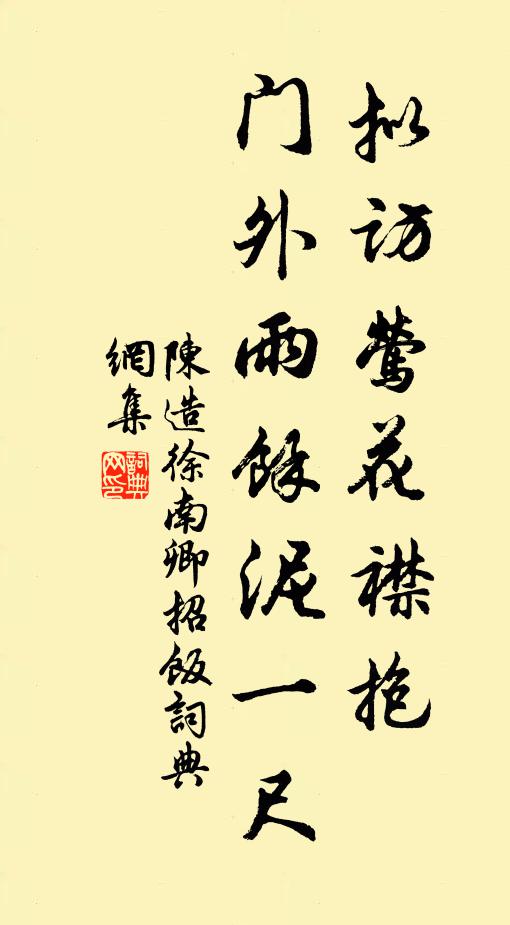 拟访莺花襟抱
门外雨馀泥一尺
陳造徐南卿招飯詞典
網集
詞典网印